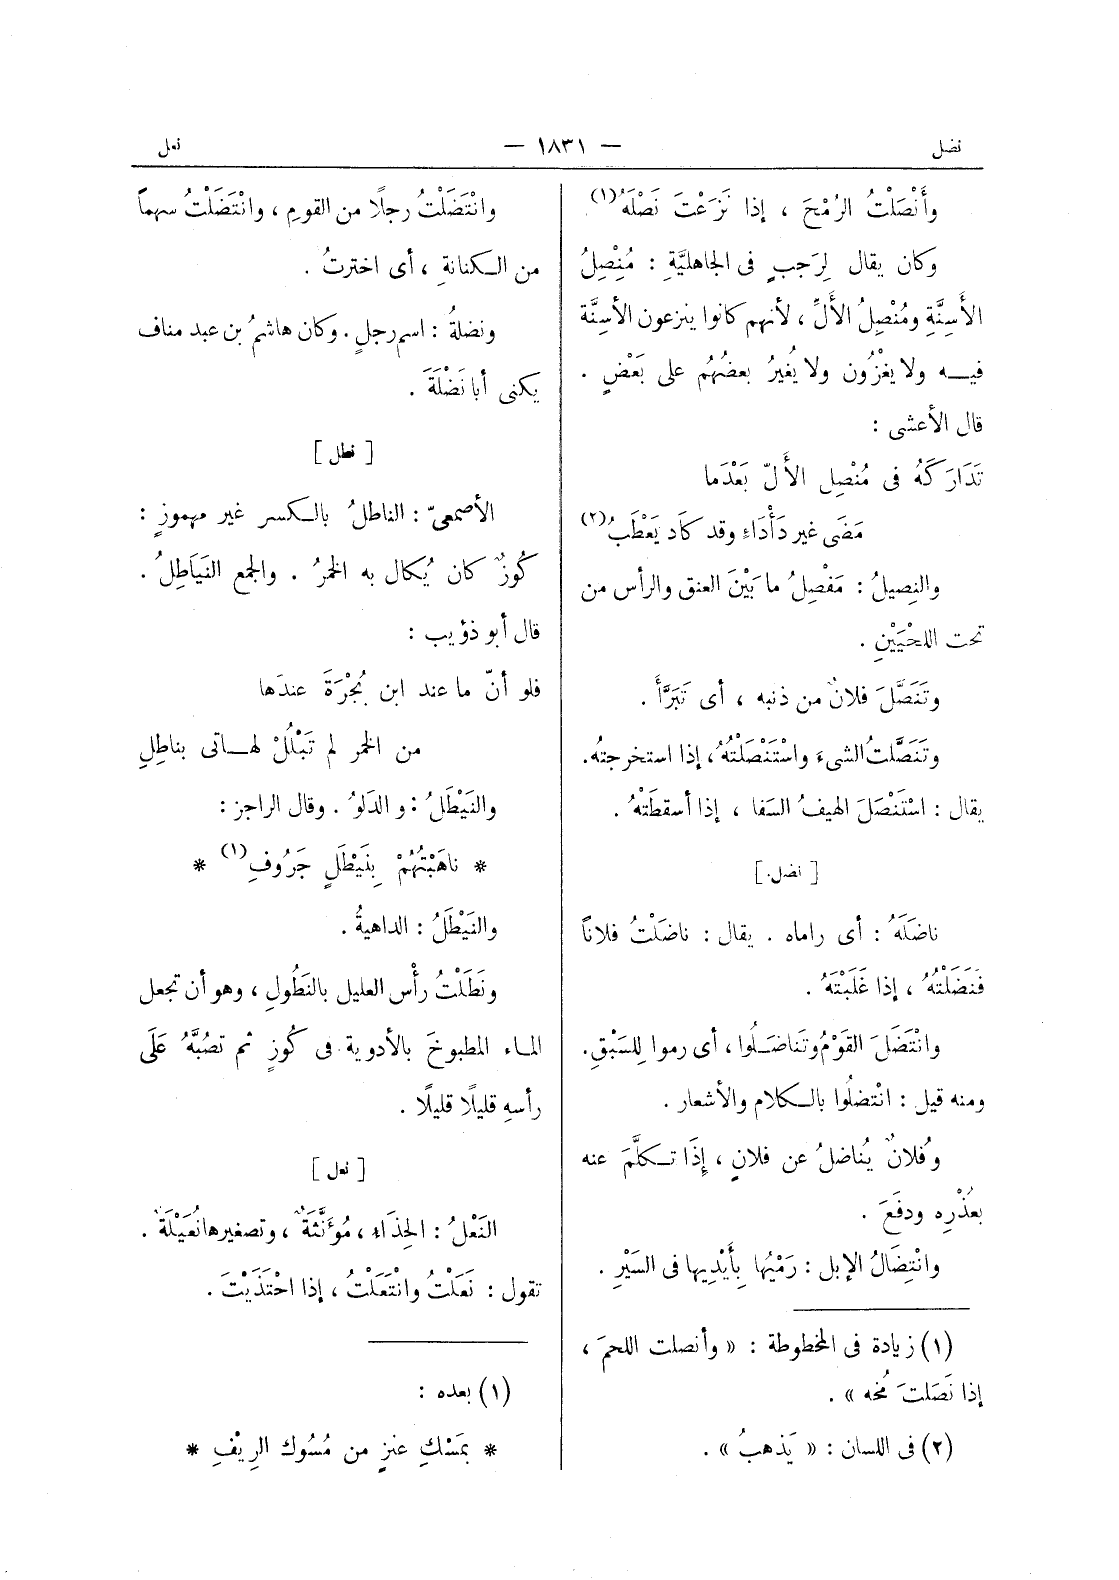 نضل
— ١٨٣١ —
نعل
وأَنْصَلْتُ الرُمْحَ ، إذا نَزَعْتَ نَصْلَهُ(١)
وكان يقال لِرَجبٍ فى الجاهليَّةِ : مُنْصِلُ
الأَسِنَّةِ ومُنْصِلُ الأَلِّ ، لأنهم كانوا ينزعون الأسِنَّة
فيـــه ولا يغْزُون ولا يُغيرُ بعضُهُم على بَعْضٍ .
قال الأعشى :
تَدَارَكَهُ فى مُنْصِل الأَلّ بَعْدَما
مَضَى غير دَأْدَاءٍ وقد كَاد يَعْطَبُ(٢)
والنِصيلُ : مَفْصِلُ ما بَيْنَ العنق والرأس من
تحت اللحْيَيْنِ .
وتَنَصَّلَ فلانٌ من ذنبه ، أى تَبَرَّأَ .
وتَنَصَّلتُ الشىءَ واسْتَنْصَلْتُهُ ، إذا استخرجتهُ.
يقال : اسْتَنْصَلَ الهيفُ السَفا ، إذا أسقطَتْهُ .
[ نضل ]
ناضَلَهُ : أى راماه . يقال : ناضَلْتُ فلاناً
فَنَضَلْتُهُ ، إذا غَلَبْتَهُ .
وانْتَضَلَ القَوْمُ وتَناضَـلُوا ، أى رموا لِلسَبْقِ.
ومنه قيل : انْتضلُوا بالـكلام والأشعار .
وَفُلانٌ يُناضلُ عن فلانٍ ، إِذَا تـكلَّمَ عنه
بعُذْرِه ودفَعَ .
وانْتِضَالُ الإبل : رَمْيُها بِأَيْدِيها فى السَيْرِ .
(١) زيادة فى المخطوطة : « وأنصلت اللحمَ ،
إذا نَصَلتَ مُخه » .
(٢) فى اللسان : « يَذهبُ » .
وانْتَضَلْتُ رجلًا من القومِ ، وانْتَضَلْتُ سهماً
من الـكنانةِ ، أى اخترتُ .
ونضلةُ : اسم رجلٍ . وكان هاشمُ بن عبد مناف
يكنى أبا نَضْلَةَ .
[ نطل ]
الأصمعىّ : الناطلُ بالـكسر غير مهموزٍ :
كُوزٌ كان يُكال به الخمرُ . والجمع النَيَاطِلُ .
قال أبو ذؤيب :
فلو أنّ ما عند ابن بُجْرَةَ عندَها
من الخمر لم تَبْلُلْ لهـــاتى بناطِلِ
والنَيْطَلُ : و الدَلوُ . وقال الراجز :
* ناهَبْتُهُمْ بِنَيْطَلٍ جَرُوفِ(١) *
والنَيْطَلُ : الداهيةُ .
ونَطَلْتُ رأْس العليل بالنَطُولِ ، وهو أن تجعل
المـاء المطبوخَ بالأدوية فى كُوزٍ ثم تصُبَّهُ عَلَى
رأسهِ قليلًا قليلًا .
[ نعل ]
النَعْلُ : الحِذاء ، مُؤَنَّثَةٌ ، وتصغيرها نُعَيْلَةٌ .
تقول : نَعَلْتُ وانْتَعَلْتُ ، إذا احْتَذَيْتَ .
(١) بعده :
* بمَسْكِ عنزٍ من مُسُوك الرِيْفِ *